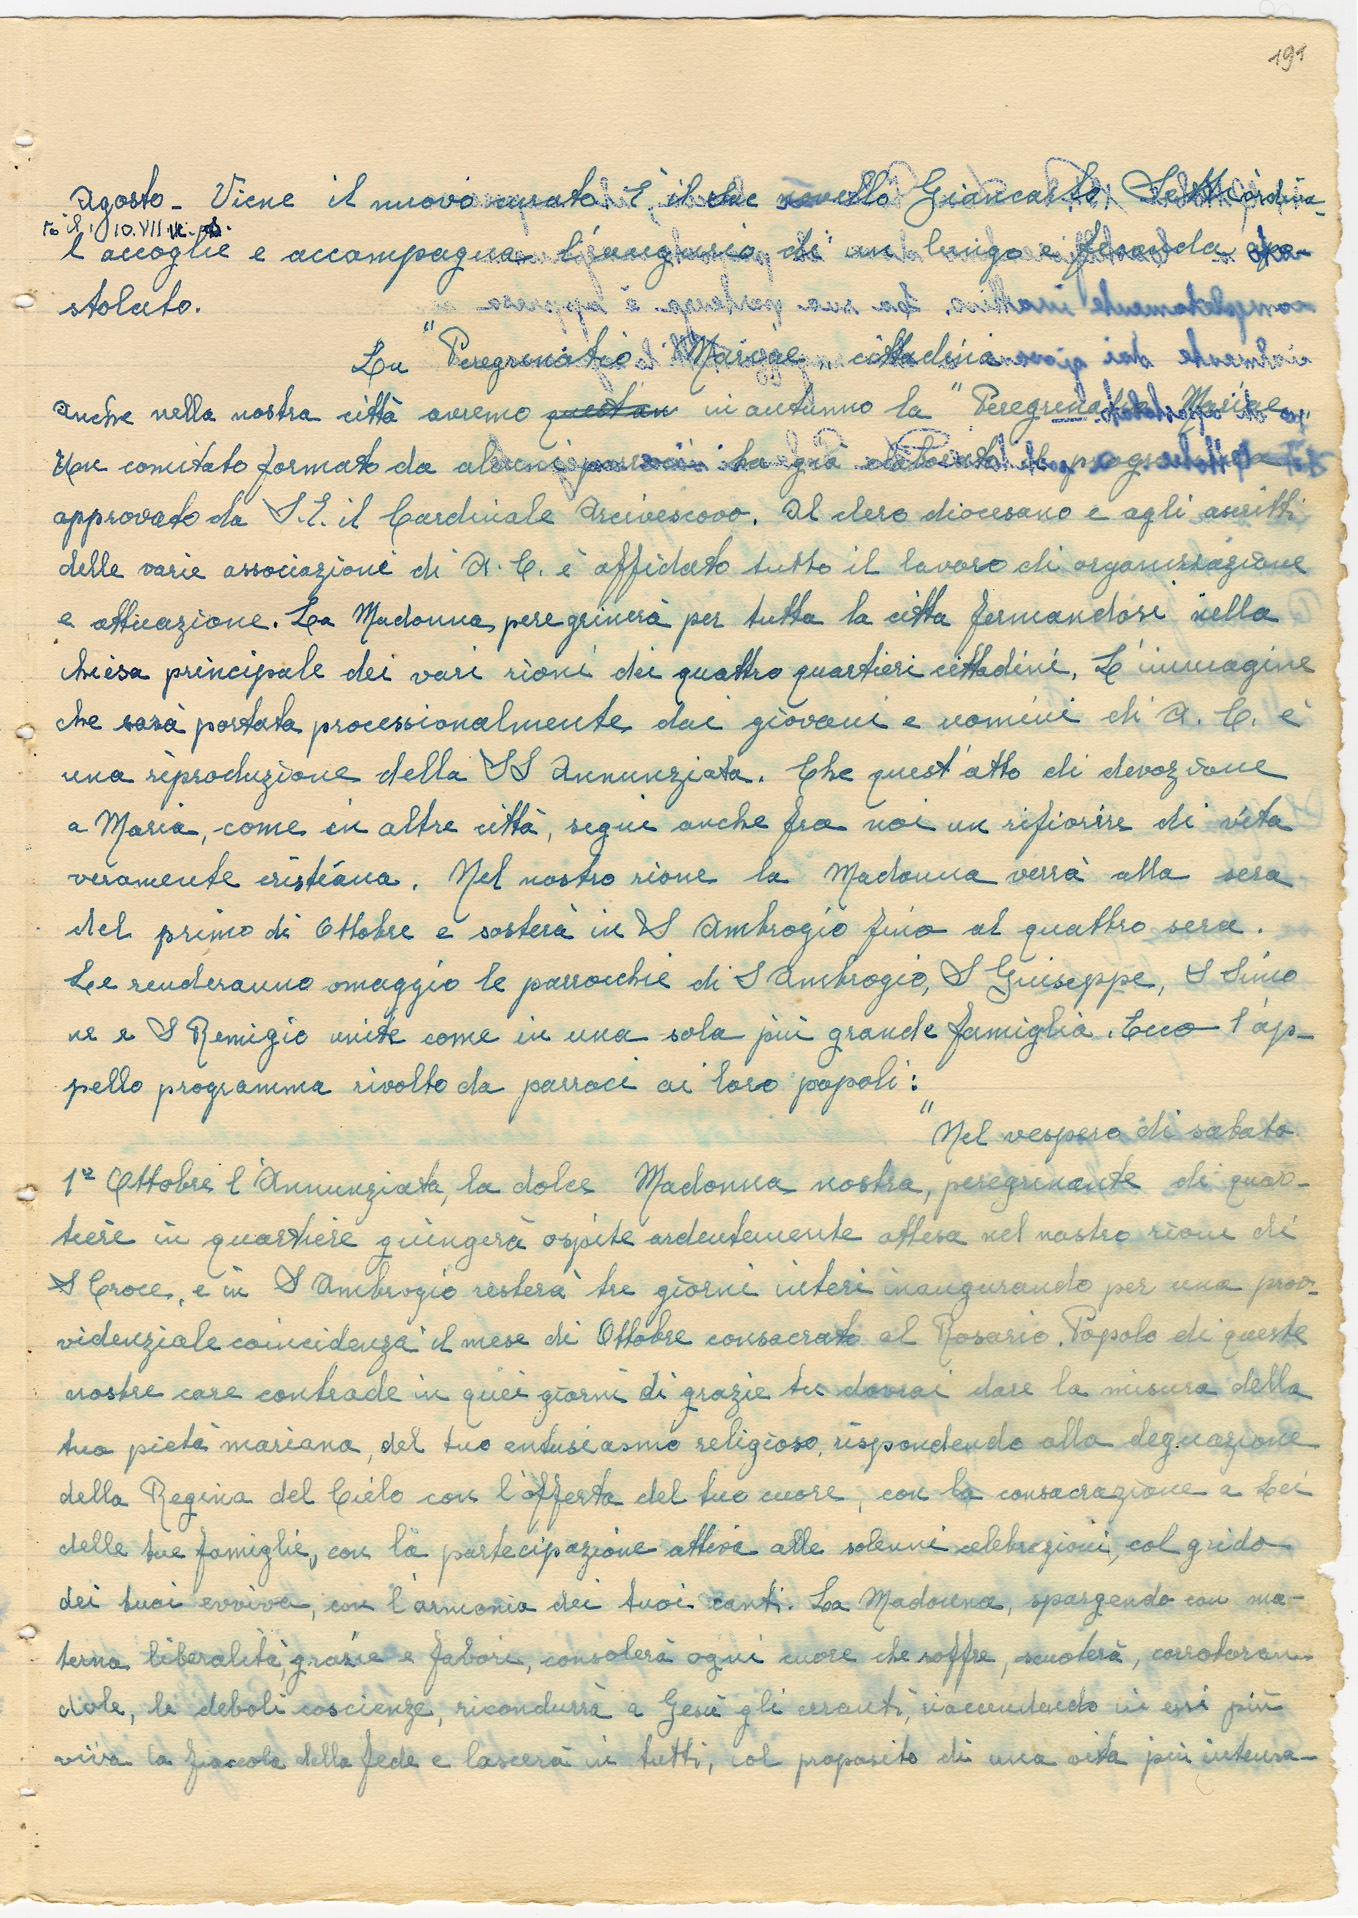 191
Agosto - Viene il nuovo curato. È il novello Giancarlo Setti ordina-
to il 10.VII u.s.
l'accoglie e accompagna l'augurio di un lungo e fecondo apo-
stolato.
La "Peregrinatio Mariae" cittadina
Anche nella nostra città avremo in autunno la "Peregrinatio Mariae"
Un comitato formato da alcuni parroci ha già elaborato il programma
approvato da S.E. il Cardinale Arcivescovo. Al clero diocesano e agli ascritti
delle varie associazioni di A.C. è affidato tutto il lavoro di organizzazione
e attuazione. La Madonna peregrinerà per tutta la citta fermandosi nella
chiesa principale dei vari rioni dei quattro quartieri cittadini. L'immagine
che sarà portata processionalmente dai giovani e uomini di A.C. è
una riproduzione della SS Annunziata. Che quest'atto di devozione
a Maria, come in altre città, segni anche fra noi un rifiorire di vita
veramente cristiana. Nel nostro rione la Madonna verrà alla sera
del primo di Ottobre e sosterà in S Ambrogio fino al quattro sera.
Le renderanno omaggio le parrocchie di S Ambrogio, S Giuseppe, S Simo
ne e S Remigio unite come in una sola più grande famiglia. Ecco l'ap-
pello programma rivolto da parroci ai loro popoli:
"Nel vespero di sabato
1º Ottobre l'Annunziata, la dolce Madonna nostra, peregrinante di quar-
tiere in quartiere giungerà ospite ardentemente attesa nel nostro rione di
S Croce, e in S Ambrogio resterà tre giorni interi inaugurando per una prov-
videnziale coincidenza il mese di Ottobre consacrato al Rosario. Popolo di queste
nostre care contrade in quei giorni di grazie tu dovrai dare la misura della
tua pietà mariana, del tuo entusiasmo religioso, rispondendo alla degnazione
della Regina del Cielo con l'offerta del tuo cuore, con la consacrazione a Lei
delle tue famiglie, con la partecipazione attiva alle solenni celebrazioni, col grido
dei tuoi evviva, con l'armonia dei tuoi canti. La Madonna, spargendo con ma-
terna liberalità, grazie e favori, consolerà ogni cuore che soffre, scuoterà, corroboran-
dole, le deboli coscienze, ricondurrà a Gesù gli erranti, riaccendendo in essi più
viva la fiaccola della fede e lascerà in tutti, col proposito di una vita più intensa-